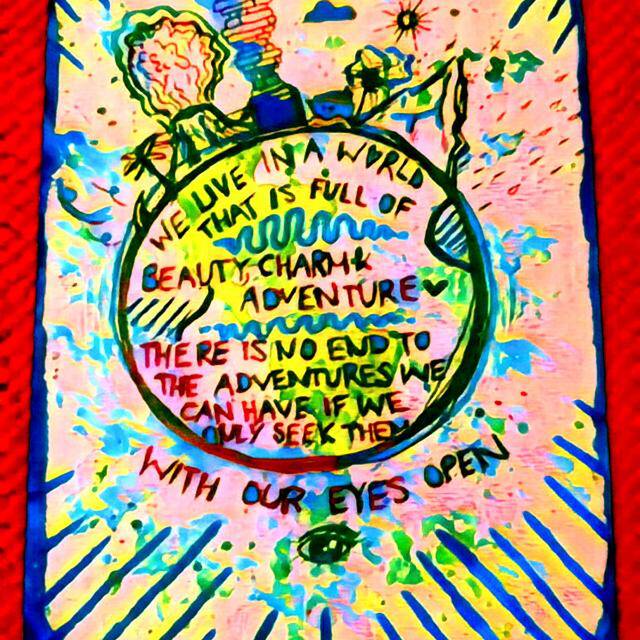 WE LIVE IN A WORLD
THAT IS FULL OF
BEAUTY, CHARM &
ADVENTURE
THERE IS NO END TO
THE ADVENTURES WE
CAN HAVE IF WE
ONLY SEEK THEM
WITH OUR EYES OPEN